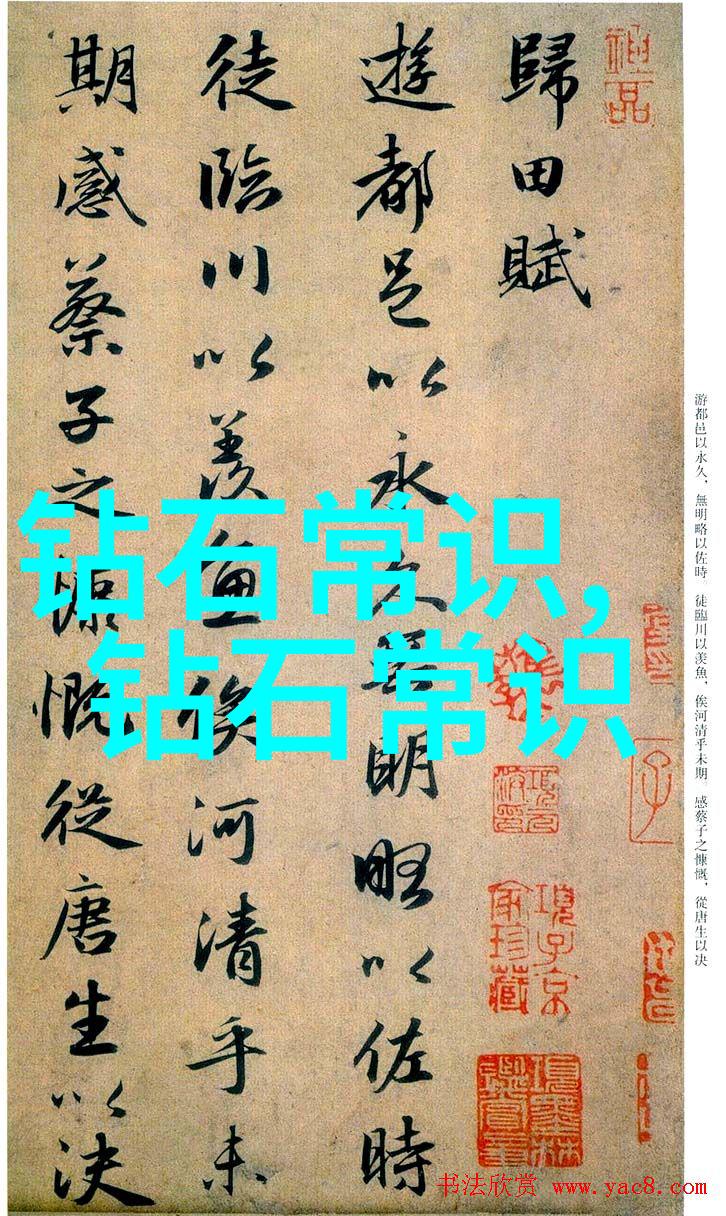 歸田賦
遊都邑以永久無明略以佐時
徒臨川以羨魚俟河清乎未
期感蔡子之慷慨從唐生以決
游都邑以永久，無明略以佐時。徒臨川以羨魚，俟河清乎未期。感蔡子之慷慨，從唐生以决
钻石常识，
钻石常识
項子京
家珍藏
书法欣赏 www.yac8.com